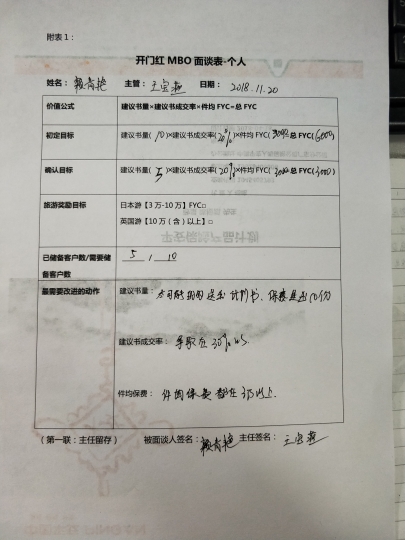 附表1：
开门红 MBO 面谈表-个人
姓名： 主管：王宝燕 日期：2018.11.20
价值公式 建议书量×建议书成交率×件均 FYC=总 FYC
初定目标 建议书量(10)×建议书成交率(20%)×件均 FYC(3000)总 FYC(6000)
确认目标 建议书量(5)×建议书成交率(20%)×件均 FYC(3000)总 FYC(3000)
旅游奖励目标 日本游【3万-10万】FYC□
英国游【10万（含）以上】□
已储备客户数/需要储备客户数 5 / 10
最需要改进的动作 建议书量：
建议书成交率：争取在30%以上
件均保费：件均保费都在 以上
（第一联：主任留存） 被面谈人签名： 主任签名：王宝燕